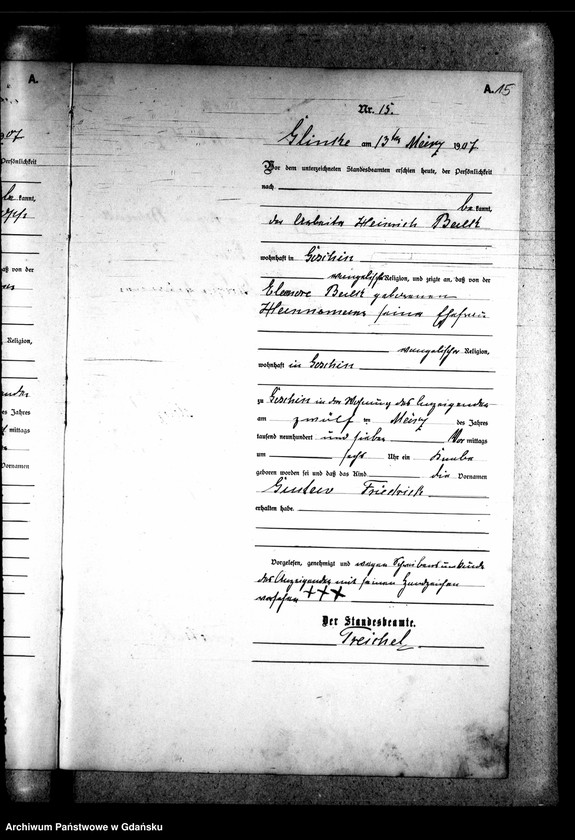 A.
A. 15
Nr. 15.
Glinke am 13ten März 1907
Vor dem unterzeichneten Standesbeamten erschien heute, der Persönlichkeit
nach
be kannt,
der Arbeiter Heinrich Beilk
wohnhaft in Goschin
evangelischer Religion, und zeigte an, daß von der
Eleonore Beilk geborenen
Heinnemann seiner Ehefrau
evangelischer Religion,
wohnhaft in Goschin
zu Goschin in der Wohnung des Anzeigenden
am zwölf ten März des Jahres
tausend neunhundert und sieben Vor mittags
um Uhr ein Knabe
geboren worden sei und daß das Kind die Vornamen
Gustav Friedrich
erhalten habe.
Vorgelesen, genehmigt und wegen Schreibensunkunde
des Anzeigenden mit seinen Handzeichen
versehen +++
Der Standesbeamte.
Treichel
907
Persönlichkeit
be kannt,
aß von der
Religion,
es Jahres
mittags
Vornamen
Archiwum Państwowe w Gdańsku